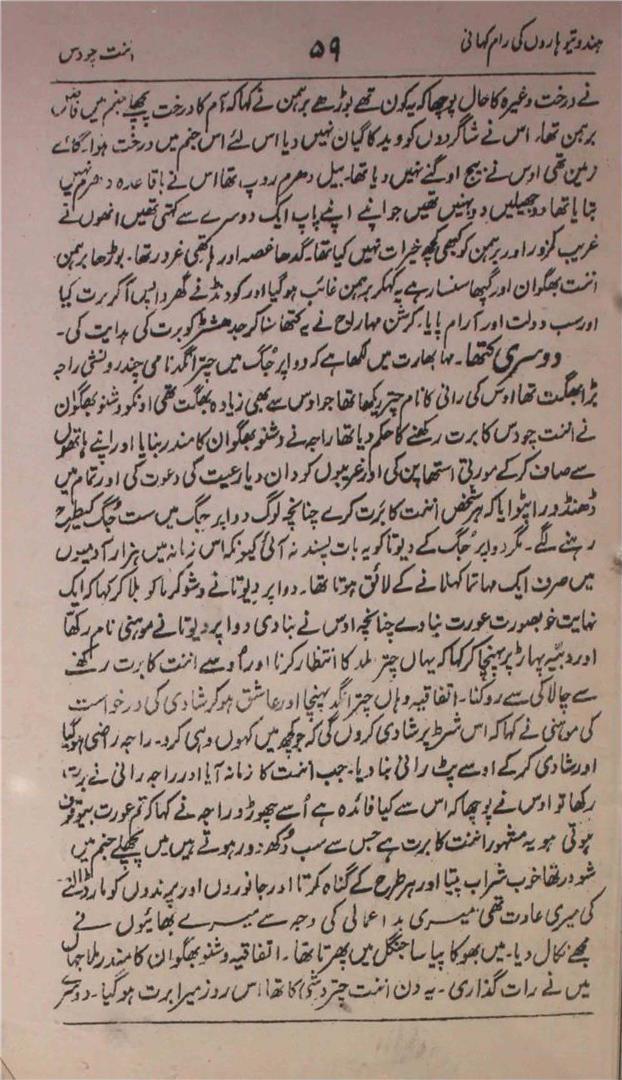 ہندو تیوہاروں کی رام کہانی ۵۹ اننت چودس
نے درخت وغیرہ کا حال پوچھا کہ یہ کون تھے بوڑھے برہمن نے کہا کہ آم کا درخت پچھلے جنم میں فاضل
برہمن تھا۔ اس نے شاگردوں کو وید کا گیان نہیں دیا اس لئے اس جنم میں درخت ہوا۔ گائے
زمین تھی اوس نے بیج اوگنے نہیں دیا تھا۔ بیل دھرم روپ تھا اس نے باقاعدہ دھرم نہیں
بتایا تھا دو جھیلیں دو بہنیں تھیں جو اپنے اپنے پاپ ایک دوسرے سے کہتی تھیں انھوں نے
غریب کمزور اور برہمن کو کبھی کچھ خیرات نہیں کیا تھا۔ گدھا غصہ اور ہاتھی غرور تھا۔ بوڑھا برہمن
اننت بھگوان اور گپھا سنسار ہے یہ کہکر برہمن غائب ہو گیا اور کونڈنے نے گھر واپس آ کر برت کیا
اور سب دولت اور آرام پایا۔ کرشن مہاراج نے یہ کتھا سنا کر جدھشٹر کو برت کی ہدایت کی۔
دوسری کتھا۔ مہا بھارت میں لکھا ہے کہ دواپر جُگ میں چترانگد نامی چندر ونشی راجہ
بڑا بھگت تھا اوس کی رانی کا نام چتر ریکھا تھا جو اوس سے بھی زیادہ بھگت تھی اونکو وشنو بھگوان
نے اننت چودس کا برت رکھنے کا حکم دیا تھا راجہ نے وشنو بھگوان کا مندر بنایا اور اپنے ہاتھوں
سے صاف کر کے مورتی استھاپن کی اور غریبوں کو دان دیا رعیت کی دعوت کی اور تمام میں
ڈھنڈورا پٹوایا کہ ہر شخص اننت کا برت کرے چنانچہ لوگ دواپر جگ میں ست جُگ کیطرح
رہنے لگے۔ مگر دواپر جگ کے دیوتا کو یہ بات پسند نہ آئی کیونکہ اس زمانہ میں ہزار آدمیوں
میں صرف ایک مہاتما کہلانے کے لائق ہوتا تھا۔ دواپر دیوتا نے وشو کرما کو بلا کر کہا کہ ایک
نہایت خوبصورت عورت بنا دے چنانچہ اوس نے بنا دی دواپر دیوتا نے موہنی نام رکھا
اور پہاڑ پر پہنچا کر کہا کہ یہاں چترانگد کا انتظار کرنا اور اُوسے اننت کا برت رکھنے
سے چالاکی سے روکنا۔ اتفاقیہ وہاں چترانگد پہنچا اور عاشق ہو کر شادی کی درخواست
کی موہنی نے کہا کہ اس شرط پر شادی کروں گی کہ جو کچھ میں کہوں وہی کرو۔ راجہ راضی ہو گیا
اور شادی کر کے اوسے پٹ رانی بنا دیا۔ جب اننت کا زمانہ آیا اور راجہ رانی نے برت
رکھا تو اوس نے پوچھا کہ اس سے کیا فائدہ ہے اُسے چھوڑو راجہ نے کہا کہ تم عورت بیوقوف
ہوتی ہو یہ مشہور اننت کا برت ہے جس سے سب دُکھ دور ہوتے ہیں میں پچھلے جنم میں
شودر تھا خوب شراب پیتا اور ہر طرح کے گناہ کرتا اور جانوروں اور پرندوں کو مار ڈالنے
کی میری عادت تھی میری بد اعمالی کی وجہ سے میرے بھائیوں نے
مجھے نکال دیا۔ میں بھوکا پیاسا جنگل میں پھرتا تھا۔ اتفاقیہ وشنو بھگوان کا مندر ملا جہاں
میں نے رات گذاری۔ یہ دن اننت چتردشی کا تھا اس روز میرا برت ہو گیا۔ دوسرے